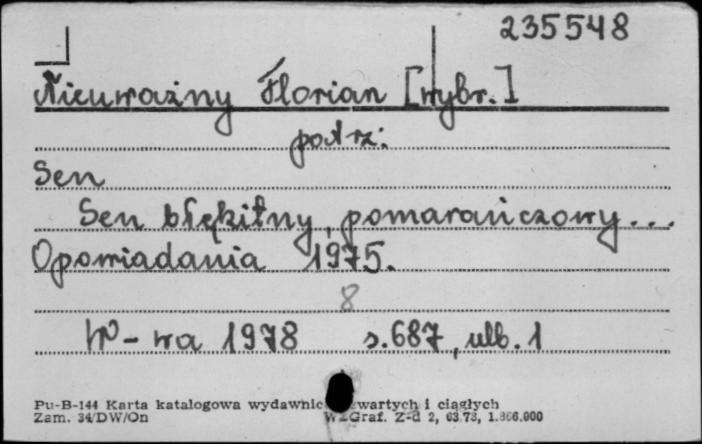 235548
Nieuważny Florian [wybr.]
patrz:
Sen
Sen błękitny, pomarańczowy...
Opowiadania 1975.
8
W-wa 1978 s. 687, nlb. 1
Pu-B-144 Karta katalogowa wydawnic zwartych i ciągłych
Zam. 34/DW/On WZGraf. Z-d 2, 63.78, 1.866.000